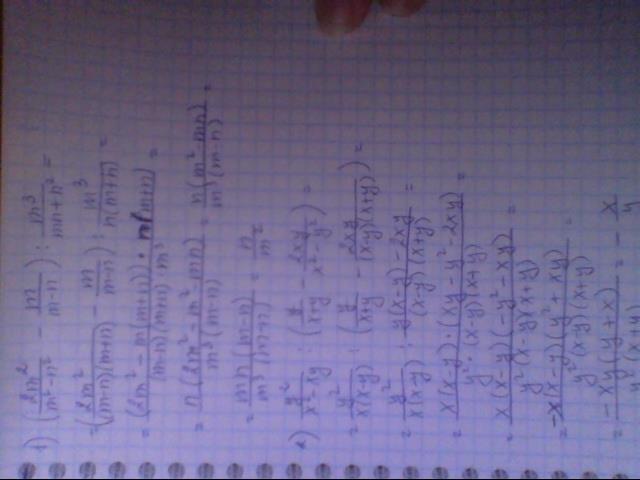 1) (2m²/(m²-n²) - m/(m-n)) : m³/(mn+n²) =
= (2m²/((m-n)(m+n)) - m/(m-n)) : m³/(n(m+n)) =
= (2m² - m(m+n)) · n(m+n)/((m-n)(m+n) · m³) =
= n(2m² - m² - mn)/(m³(m-n)) = n(m² - mn)/(m³(m-n)) =
= mn(m-n)/(m³(m-n)) = n/m²
2) y²/(x²-xy) : (y/(x+y) - 2xy/(x²-y²)) =
= y²/(x(x-y)) : (y/(x+y) - 2xy/((x-y)(x+y))) =
= y²/(x(x-y)) : (y(x-y) - 2xy)/((x-y)(x+y)) =
= x(x-y) · (xy - y² - 2xy)/(y² · (x-y)(x+y)) =
= x(x-y)(-y² - xy)/(y²(x-y)(x+y)) =
= -x(x-y)(y² + xy)/(y²(x-y)(x+y)) =
= -xy(y+x)/(y²(x+y)) = - x/y